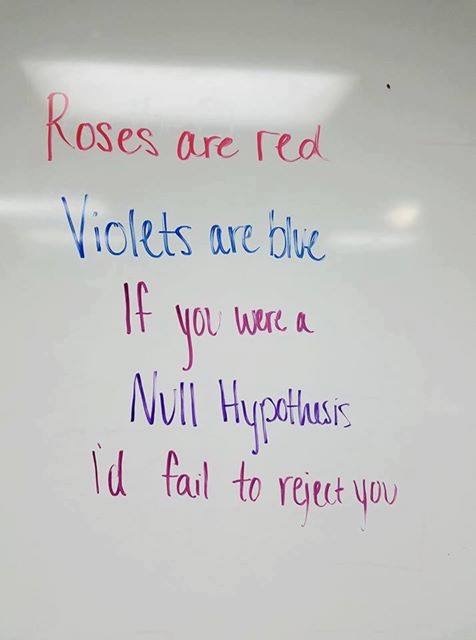 Roses are red
Violets are blue
If you were a
Null Hypothesis
i'd fail to reject you